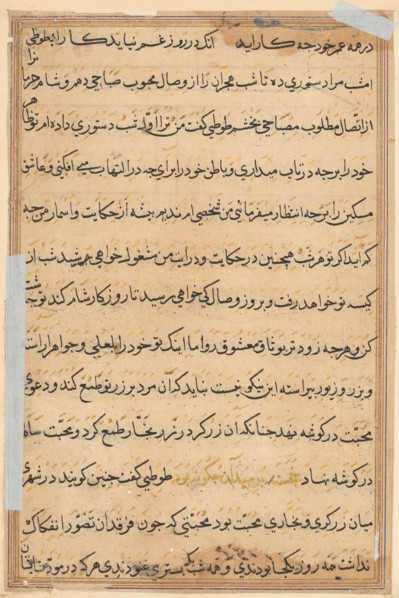 در همه عمر خود چه کار آید انک در روز غم نیاید کار ای طوطی
امشب مرا دستوری ده تا شب هجران را از وصال محبوب صباحی دهم و شام هر ترا
از اتصال مطلوب مصباحی بخشم طوطی گفت من ترا اول شب دستوری داده ام تو
خود را برچه در تاب میداری و باطن خود را برای چه در التهاب می افکنی و عاشق
مسکین را برچه انتظار میفرمائی من شخصی ام ندیم پیشه از حکایت و اسمار من چه
کم آید اگر تو هر شب همچنین در حکایت و درایت من مشغول خواهی شد شب از
کیسه تو خواهد رفت و بروز وصال کی خواهی رسید تا روز کار شام کند تو
کن و هرچه زودتر بوثاق معشوق رو اما اینک تو خود را بلعلی و جواهر اراسته
و بزر و زیور پیراسته این نیکو نیست نباید که آن مرد بر زر تو طمع کند و دعوی
محبت در گوشه نهد چنانکه آن زرگر در زر نجار طمع کرد و محبت
در گوشه نهاد خجسته پرسید آن چگونه بود طوطی گفت چنین گویند در شهری
میان زرگری و نجاری محبت بود محبتی که چون فرقدان تصور انفکاک
نداشت همه روز یکجا بودندی و همه شب یک بستری غنودندی هرکه در مودت